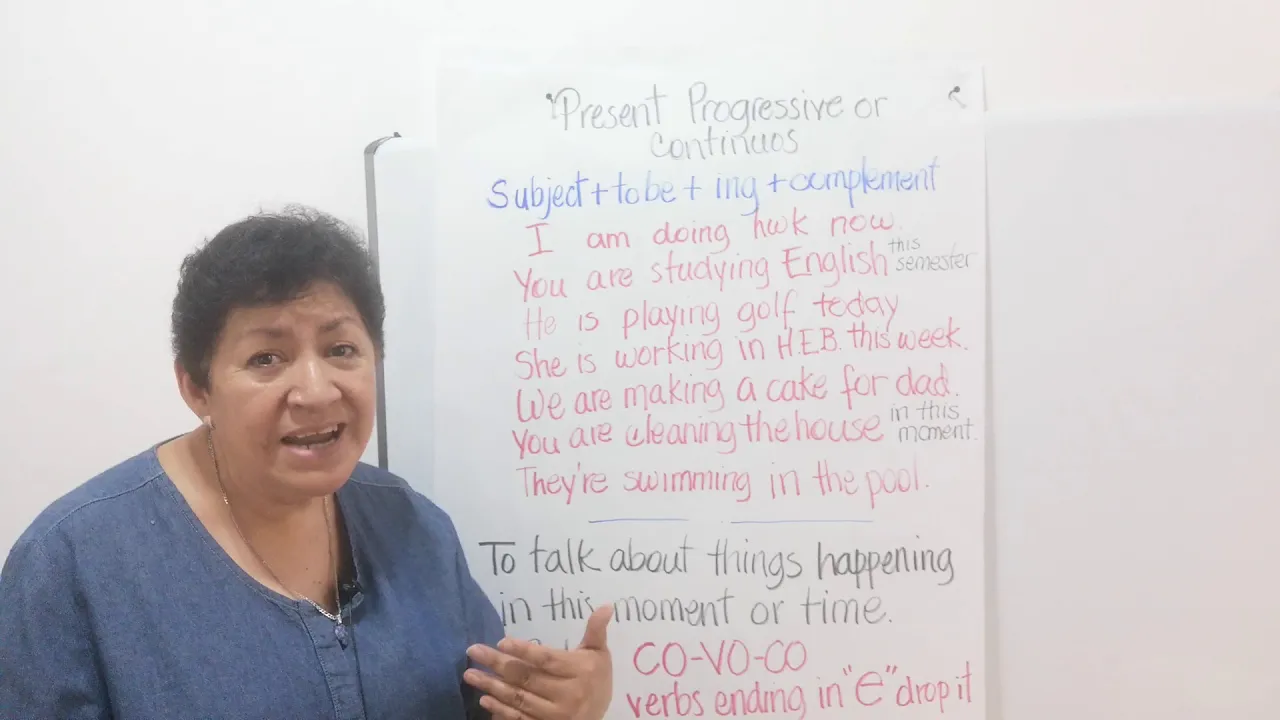 Present Progressive or
Continuos
Subject + to be + ing + complement
I am doing hwk now.
You are studying English this semester
He is playing golf today
She is working in H.E.B. this week.
We are making a cake for dad.
You are cleaning the house in this moment.
They're swimming in the pool.
To talk about things happening
in this moment or time.
CO-VO-CO
verbs ending in "e" drop it